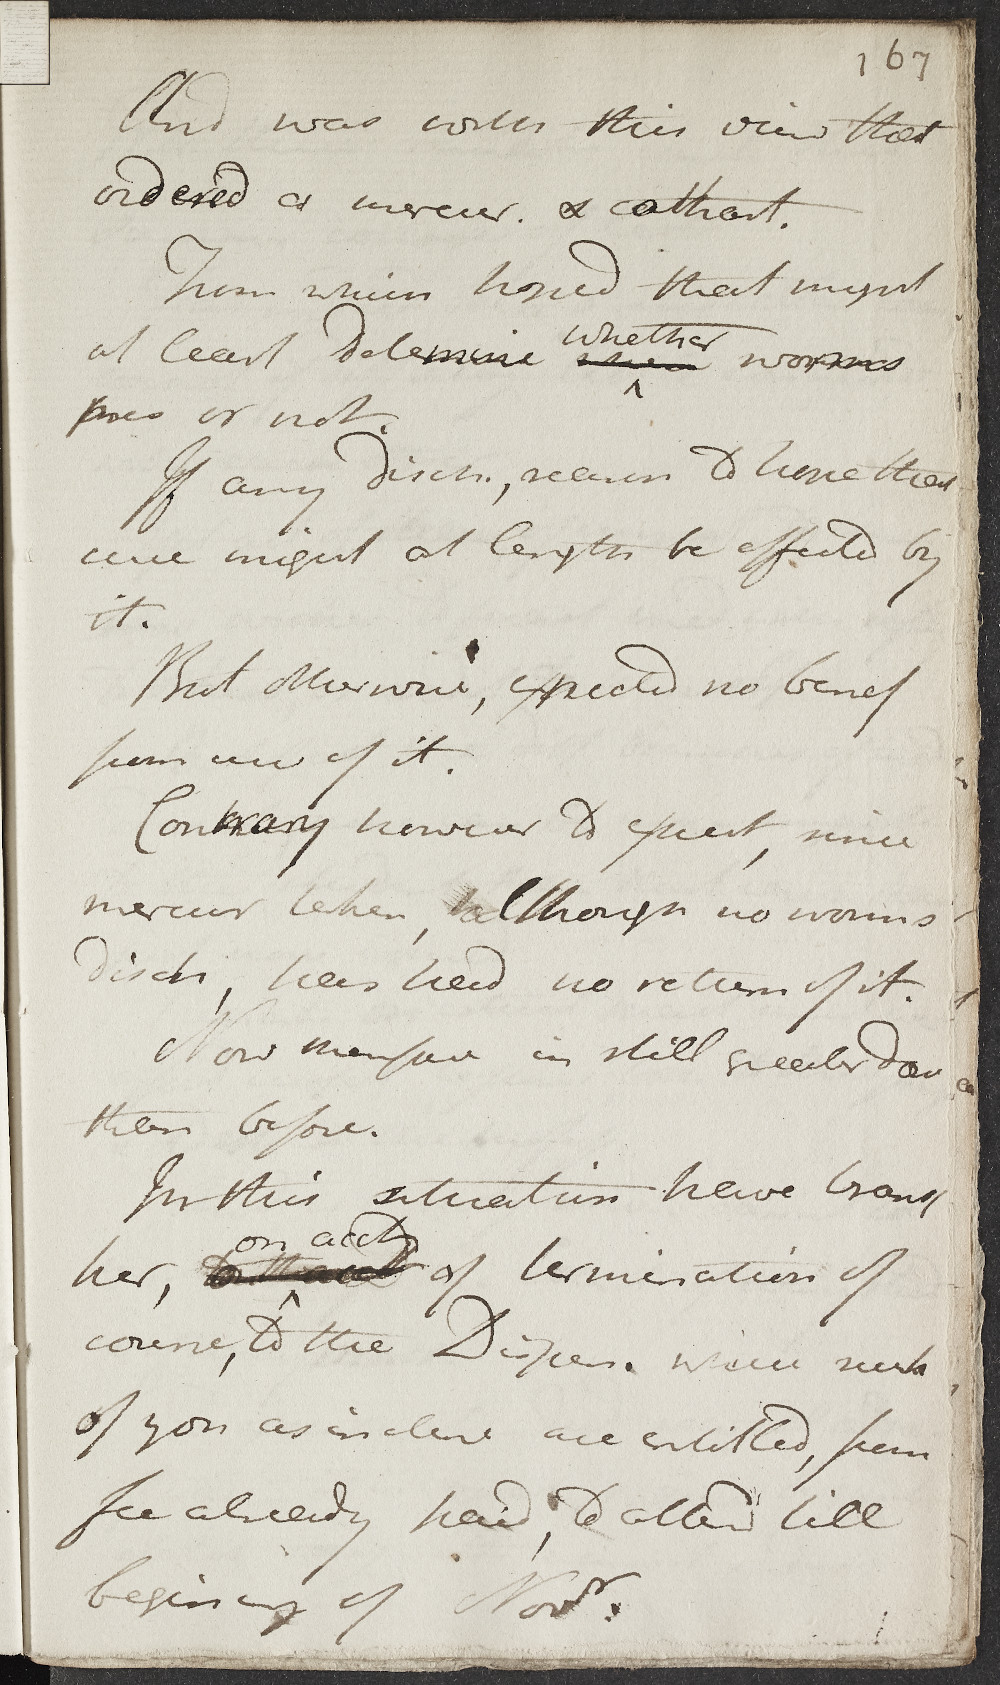 167
And was with this view that
ordered a mercur. & cathart.
From which hoped that might
at least determine whether worms
pres or not.
If any disch., reason to hope that
cure might at length be effected by
it.
But otherwise, expected no benef
from use of it.
Contrary however to expect, since
mercur taken, although no worms
disch, has had no return of it.
Now therefore in still greater
than before.
In this situation have transf
her, on acct of termination of
course, to the Dispen. where such
of you as inclin are entitled, from
fee already paid, to attend till
begining of Novr.